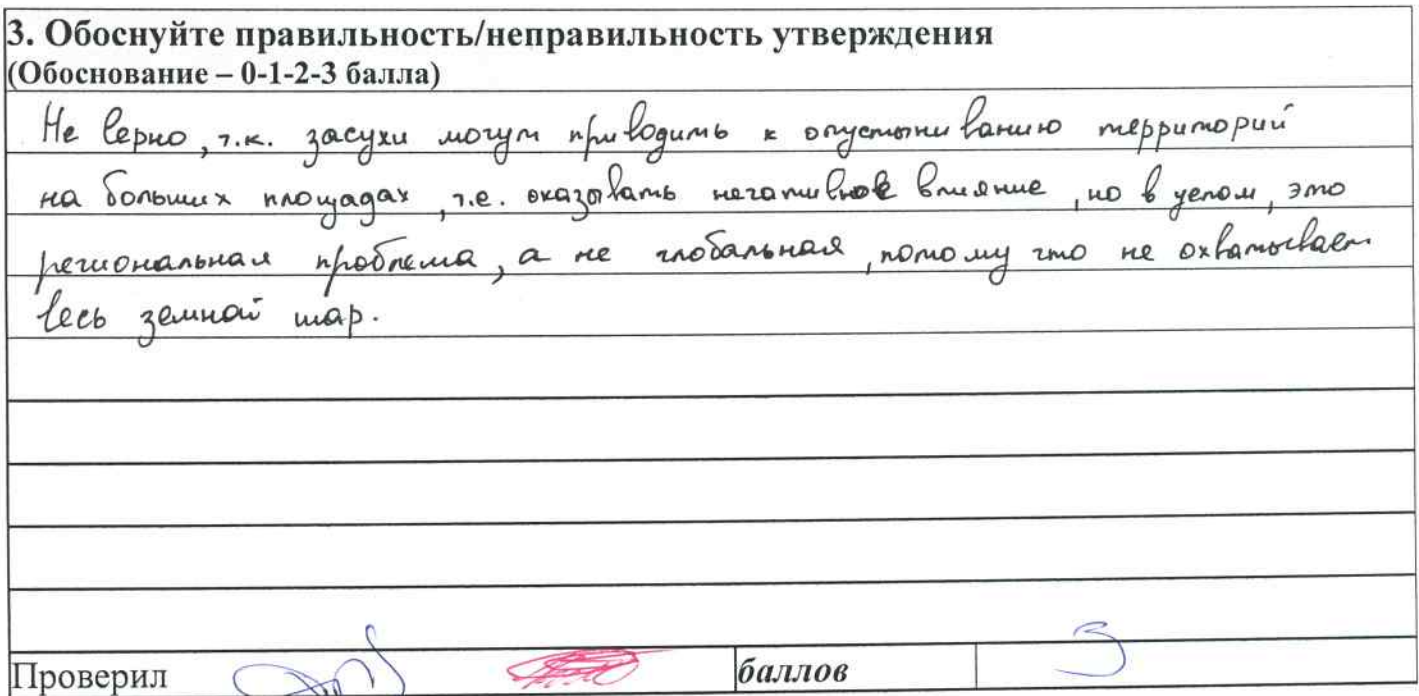 3. Обоснуйте правильность/неправильность утверждения
(Обоснование – 0-1-2-3 балла)
Не верно, т.к. засухи могут приводить к опустыниванию территорий
на больших площадях, т.е. оказывать негативное влияние, но в целом, это
региональная проблема, а не глобальная, потому что не охватывает
весь земной шар.
Проверил баллов 3